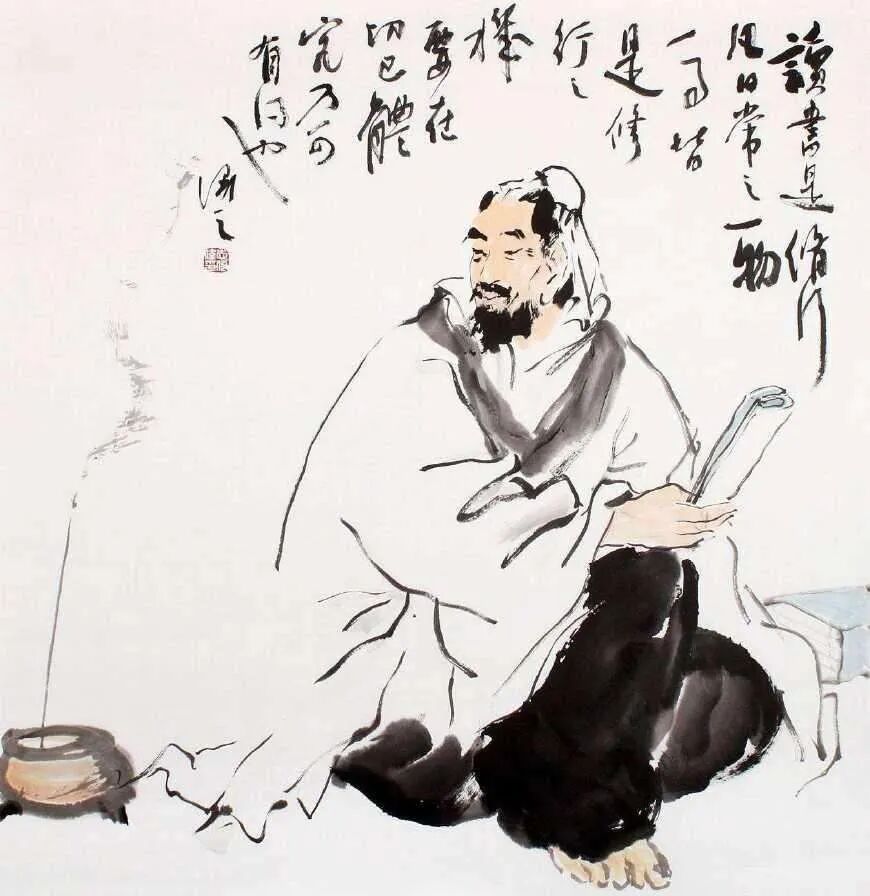 讀書是脩行
凡日常之一物
一事皆
是修
行之
機
要在
切己體
究乃可
有得也